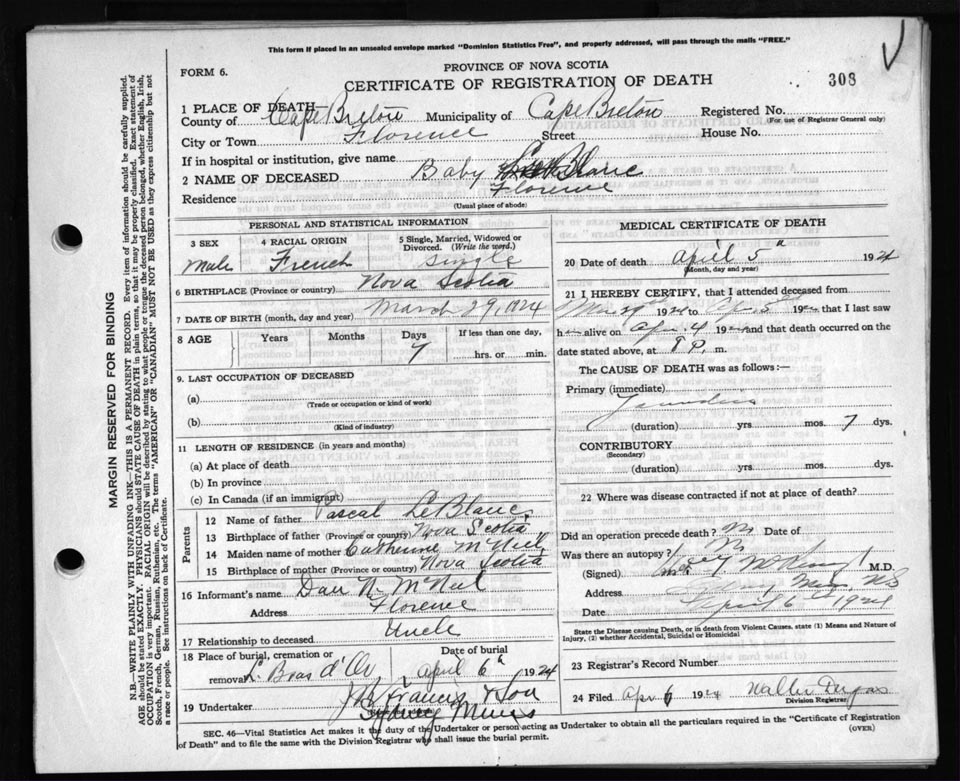 This form if placed in an unsealed envelope marked "Dominion Statistics Free", and properly addressed, will pass through the mails "FREE."
PROVINCE OF NOVA SCOTIA
FORM 6.
CERTIFICATE OF REGISTRATION OF DEATH
308
1 PLACE OF DEATH—
County of Cape Breton Municipality of Cape Breton Registered No.
(For use of Registrar General only)
City or Town Florence Street House No.
If in hospital or institution, give name
2 NAME OF DECEASED Baby LeBlanc
Residence Florence
(Usual place of abode)
PERSONAL AND STATISTICAL INFORMATION
3 SEX Male
4 RACIAL ORIGIN French
5 Single, Married, Widowed or Divorced. (Write the word.) Single
6 BIRTHPLACE (Province or country) Nova Scotia
7 DATE OF BIRTH (month, day and year) March 29, 1924
8 AGE Years Months Days 7 If less than one day, hrs. or min.
9. LAST OCCUPATION OF DECEASED
(a)
(Trade or occupation or kind of work)
(b)
(Kind of industry)
11 LENGTH OF RESIDENCE (in years and months)
(a) At place of death
(b) In province
(c) In Canada (if an immigrant)
Parents
12 Name of father Pascal LeBlanc
13 Birthplace of father (Province or country) Nova Scotia
14 Maiden name of mother Catherine McNeil
15 Birthplace of mother (Province or country) Nova Scotia
16 Informant's name Dan N. McNeil
Address Florence
17 Relationship to deceased Uncle
18 Place of burial, cremation or removal L. Bras d'Or Date of burial April 6th 1924
19 Undertaker J. Francis & Son
Sydney Mines
MEDICAL CERTIFICATE OF DEATH
20 Date of death April 5th 1924
(Month, day and year)
21 I HEREBY CERTIFY, that I attended deceased from
Mar 29th 1924 to Apr. 5th 1924 that I last saw
h alive on Apr. 4 192 and that death occurred on the
date stated above, at 8 P. m.
The CAUSE OF DEATH was as follows:—
Primary (immediate)
Jaundice
(duration) yrs. mos. 7 dys.
CONTRIBUTORY
(Secondary)
(duration) yrs. mos. dys.
22 Where was disease contracted if not at place of death?
Did an operation precede death? No Date of
Was there an autopsy? No
(Signed) M.D.
Address Sydney Mines N.S
Date April 6th 1924
State the Disease causing Death, or in death from Violent Causes, state (1) Means and Nature of Injury, (2) whether Accidental, Suicidal or Homicidal
23 Registrar's Record Number
24 Filed Apr 6 1924 Walter
Division Registrar
SEC. 46—Vital Statistics Act makes it the duty of the Undertaker or person acting as Undertaker to obtain all the particulars required in the "Certificate of Registration
of Death" and to file the same with the Division Registrar who shall issue the burial permit.
(OVER)
MARGIN RESERVED FOR BINDING
N.B.—WRITE PLAINLY WITH UNFADING INK—THIS IS A PERMANENT RECORD. Every item of information should be carefully supplied.
AGE should be stated EXACTLY. PHYSICIANS should STATE CAUSE OF DEATH in plain terms, so that it may be properly classified. Exact statement of
OCCUPATION is very important. RACIAL ORIGIN will be described by stating to what people or tongue the deceased person belonged, whether English, Irish,
Scotch, French, German, Russian, Ruthenian, etc. The terms "AMERICAN" or "CANADIAN" MUST NOT BE USED as they express citizenship but not
a race or people. See instructions on back of Certificate.